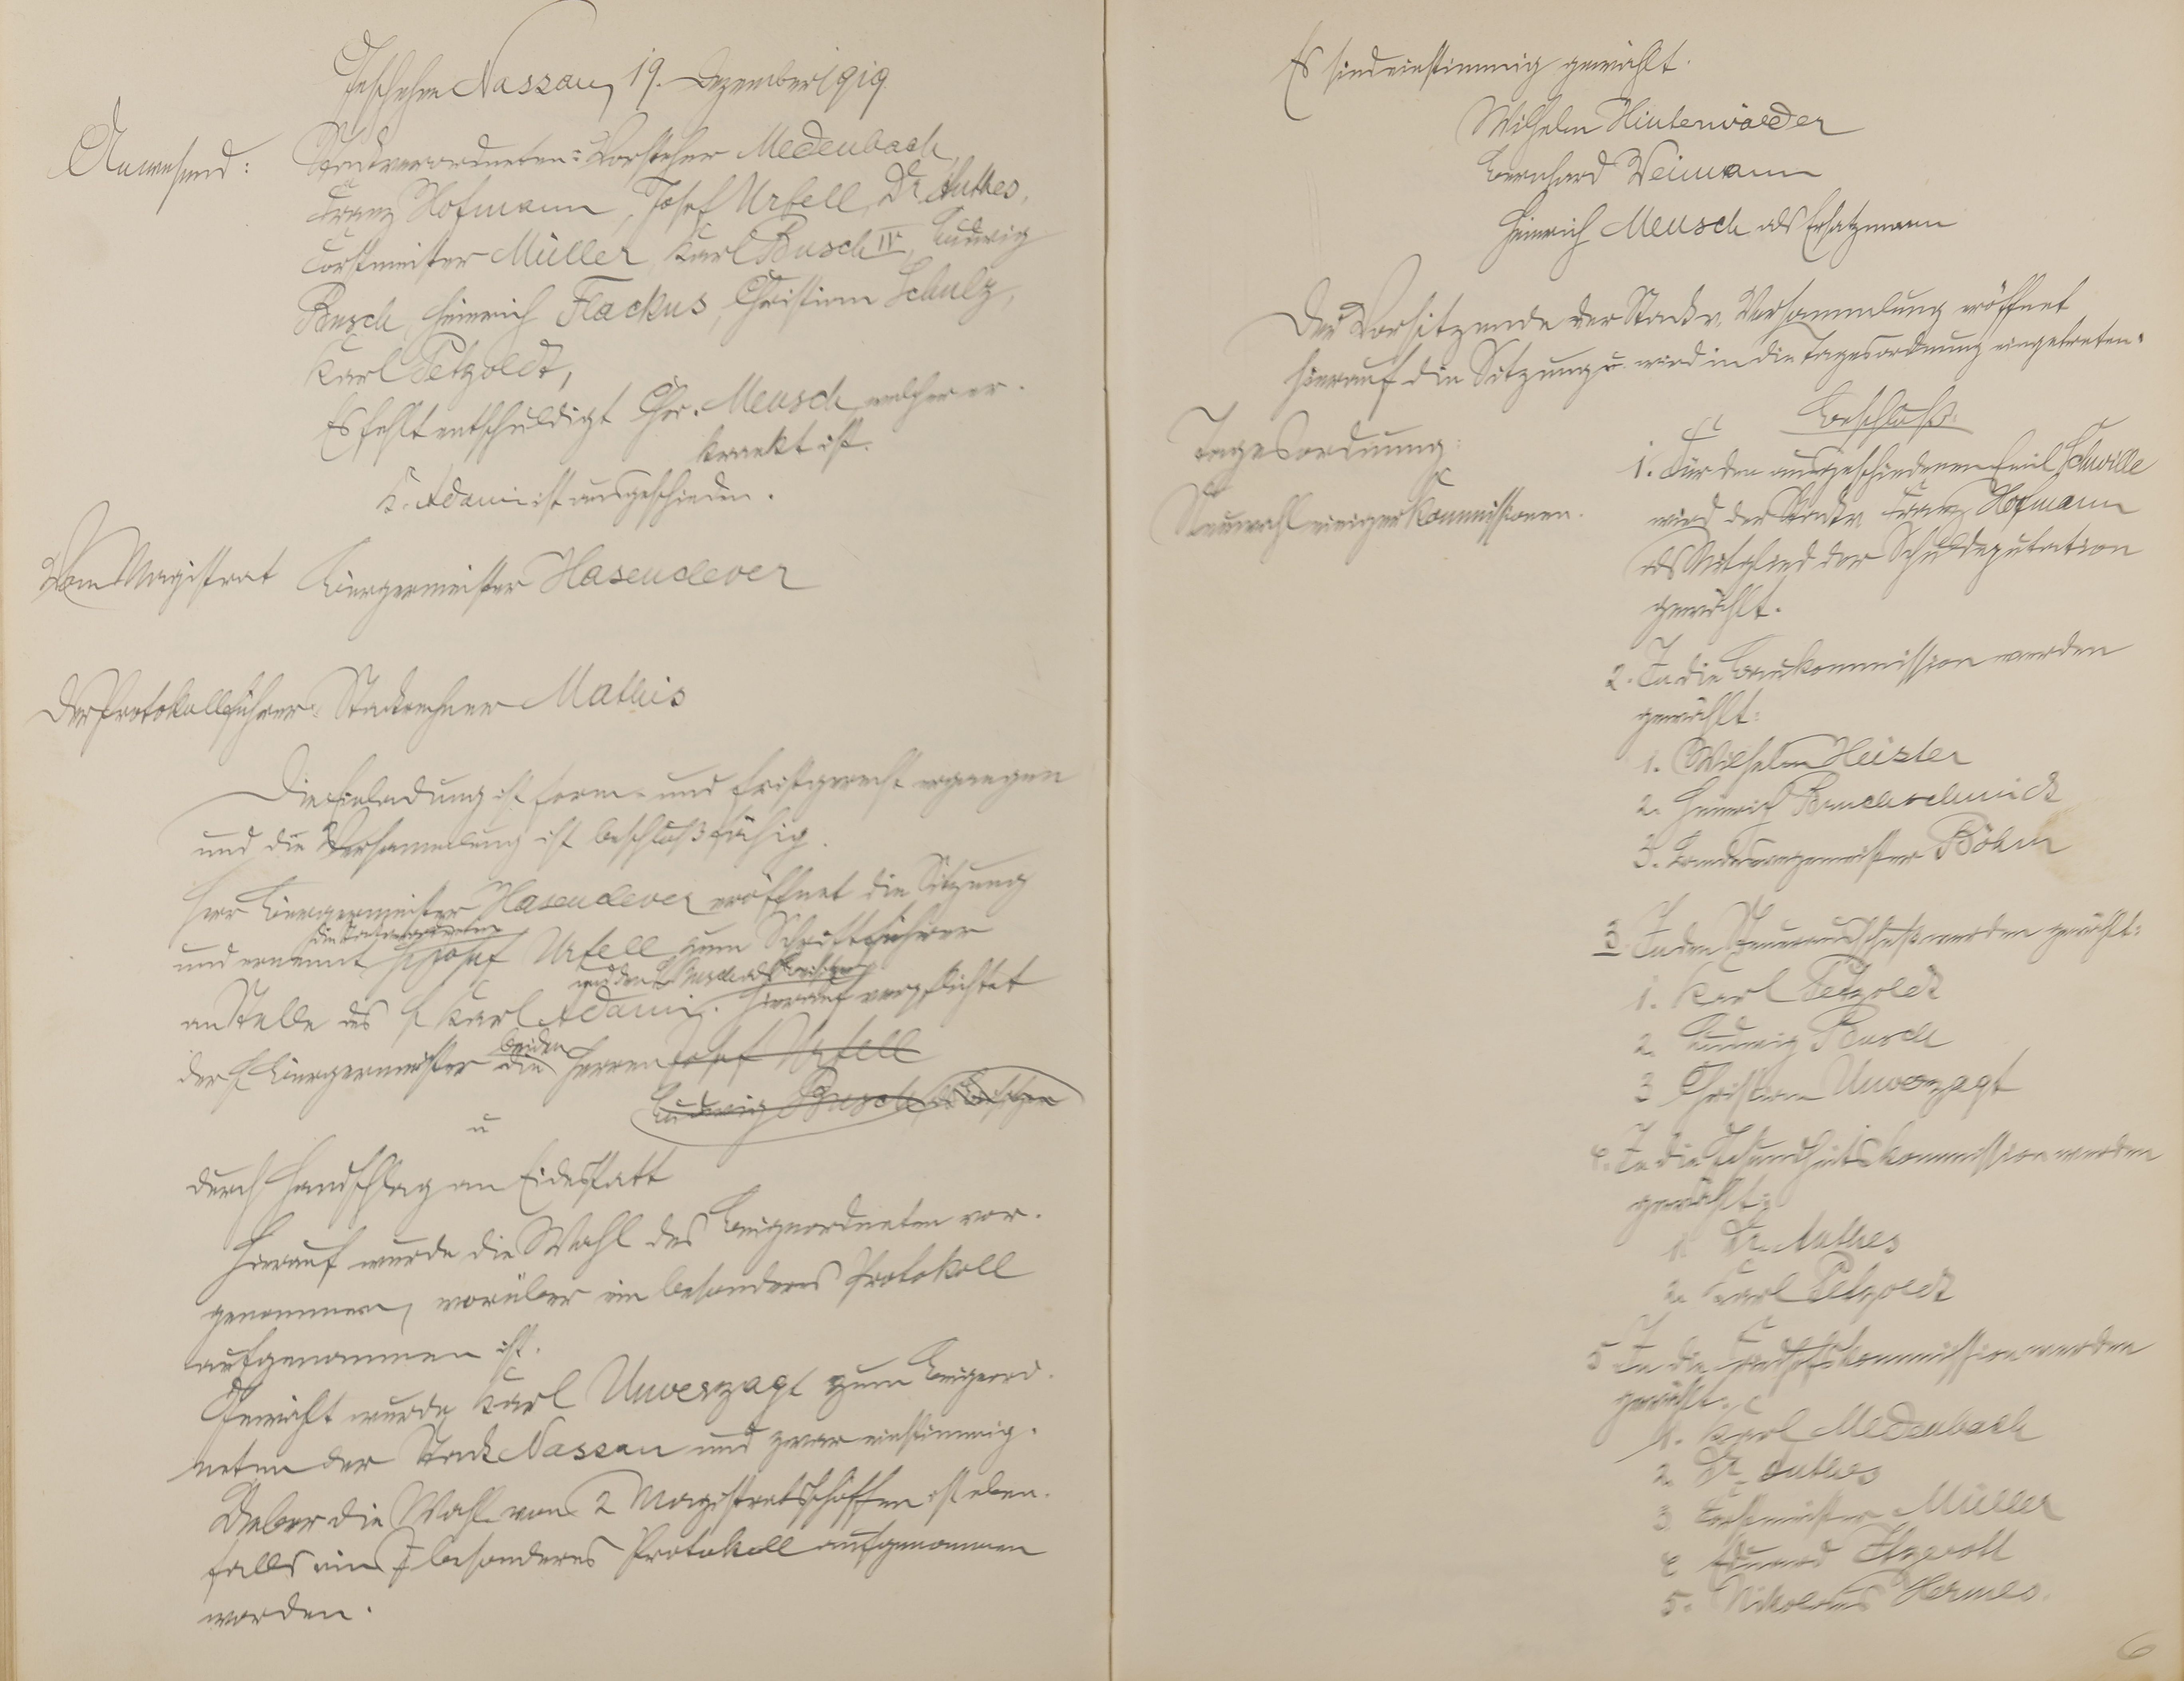 Geschehen Nassau, 19. Dezember 1919
Anwesend: Stadtverordneten-Vorsteher Medenbach,
Franz Hofmann, Josef Urfell, Dr. Anthes,
Forstmeister Müller, Karl Busch IV, Ludwig
Busch, Heinrich Flackus, Christian Schulz,
Karl Petzoldt,
Es fehlt entschuldigt Chr. Meusch, welcher er-
krankt ist.
K. Adami ist ausgeschieden.
Vom Magistrat Bürgermeister Hasenclever
Der Protokollführer: Stadtrechner Mathis
Die Einladung ist form- und fristgerecht ergangen
und die Versammlung ist beschlußfähig.
Herr Bürgermeister Hasenclever eröffnet die Sitzung
und ernennt H Josef Urfell zum Schriftführer
und den L. Busch als Beisitzer
an Stelle des H Karl Adami. Hierauf verpflichtet
beiden
der H Bürgermeister die Herren Josef Urfell
u Ludwig Busch als
durch Handschlag an Eidesstatt
Hierauf wurde die Wahl des Beigeordneten vor-
genommen, worüber ein besonderes Protokoll
aufgenommen ist.
Gewählt wurde Karl Unverzagt zum Beigeord-
neten der Stadt Nassau und zwar einstimmig.
Ueber die Wahl von 2 Magistratsschöffen ist eben-
falls ein besonderes Protokoll aufgenommen
worden.
Es sind einstimmig gewählt.
Wilhelm Hinterwälder
Bernhard Weimann
Heinrich Meusch als Ersatzmann
Der Vorsitzende der Stadtv. Versammlung eröffnet
hierauf die Sitzung u. wird in die Tagesordnung eingetreten.
Tagesordnung:
Neuwahl einiger Kommissionen.
Beschluß:
1. Für den ausgeschiedenen Emil Schwille
wird der Stadtv. Franz Hofmann
als Mitglied der Schuldeputation
gewählt.
2. In die Baukommission werden
gewählt:
1. Wilhelm Heisler
2. Heinrich Bruchschmidt
3. Landwegemeister Böhm
3. In den Steuerausschuß werden gewählt:
1. Karl Petzoldt
2. Ludwig Busch
3 Christian Unverzagt
4. In die Gesundheitskommission werden
gewählt:
1. Dr. Anthes
2. Karl Petzoldt
5 In die Friedhofskommission werden
gewählt.
1. Karl Medenbach
2. Dr. Anthes
3 Forstmeister Müller
4 Eduard
5. Nikolaus Hermes.
6